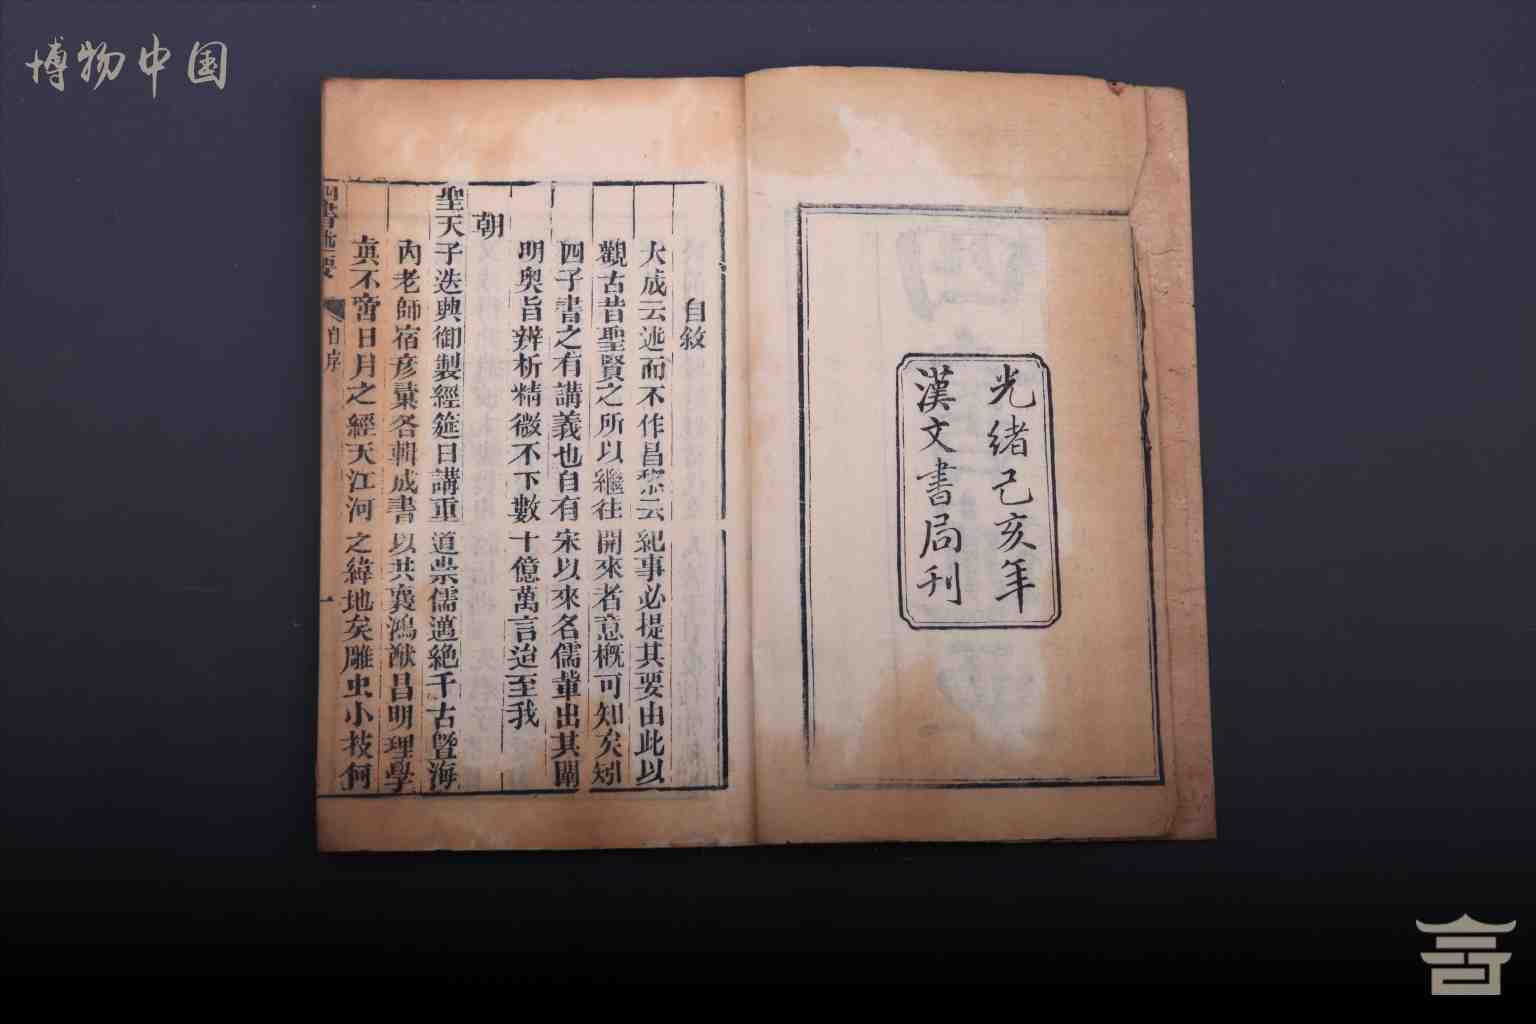 博物中国
光緒己亥年
漢文書局刊
自敘
大成云述而不作昌黎云紀事必提其要由此以
觀古昔聖賢之所以繼往開來者意概可知矣矧
四子書之有講義也自有宋以來名儒輩出其闡
明奧旨辨析精微不下數十億萬言迨至我
朝
聖天子迭興御製經筵日講重道崇儒邁絕千古暨海
內老師宿彥彙各輯成書以共襄鴻猷昌明理學
真不啻日月之經天江河之緯地矣雕虫小技何
四書 要 自序 一